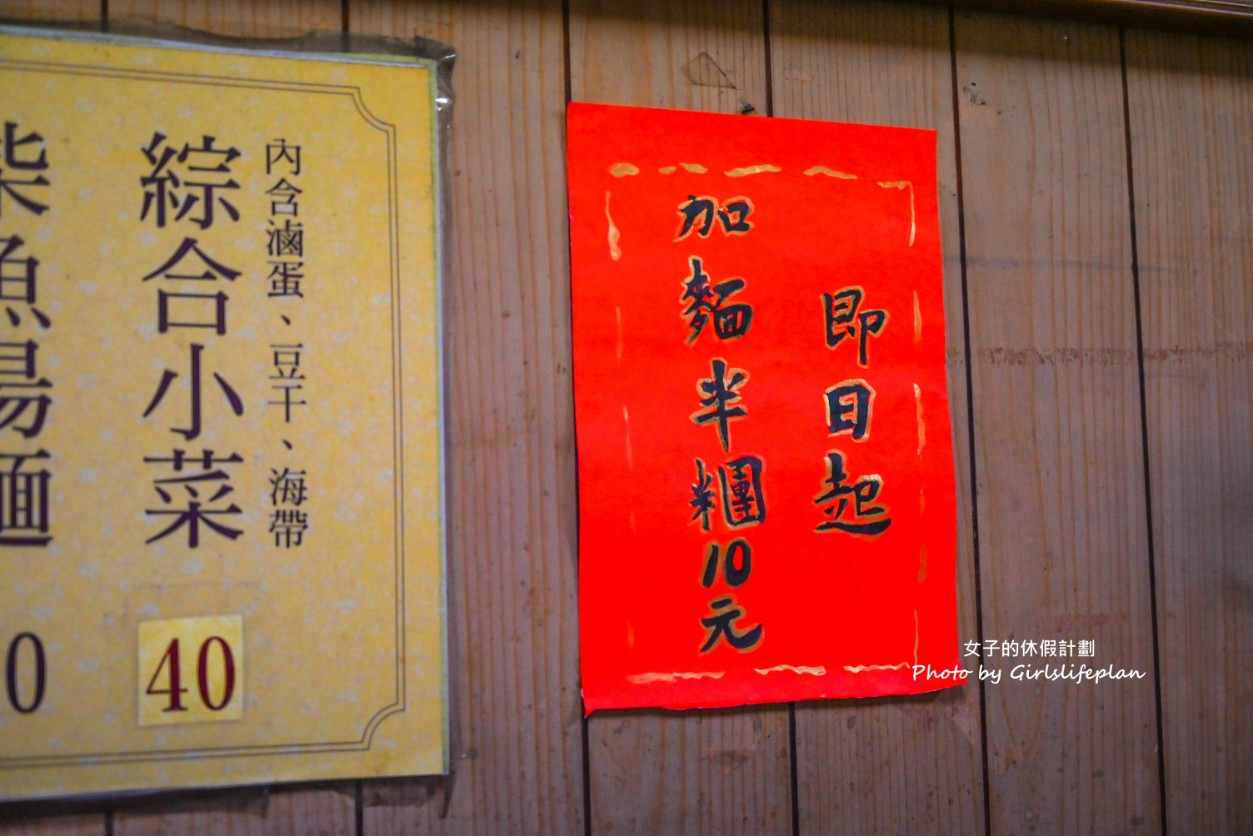 即日起
加麵半糰10元
內含滷蛋、豆干、海帶
綜合小菜
40
柴魚湯麵
0
女子的休假計劃
Photo by Girlslifeplan